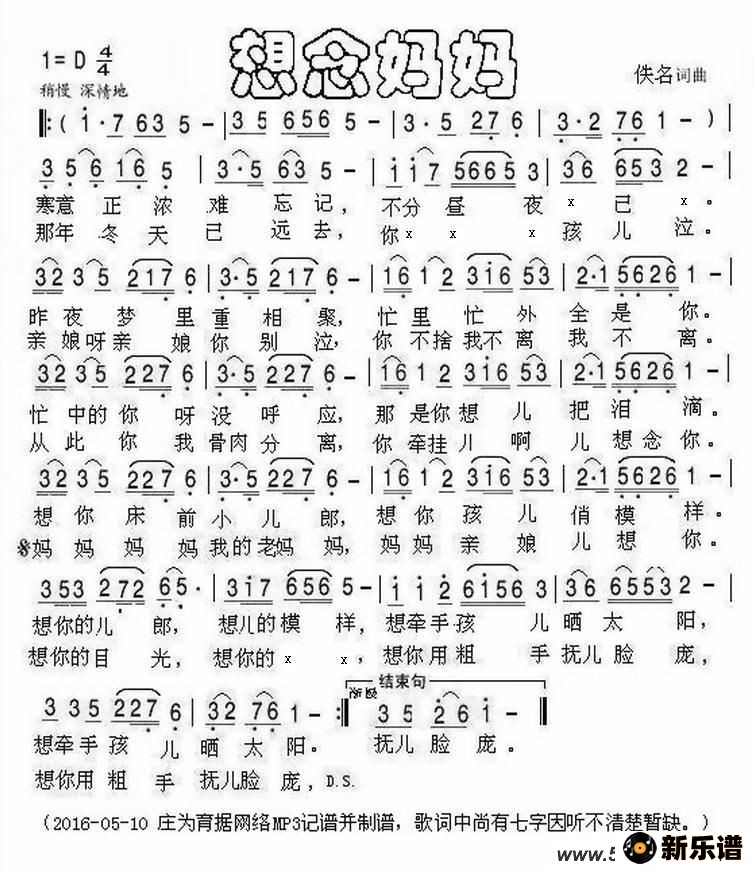 想念妈妈
1=D 4/4
稍慢 深情地
佚名词曲
‖:( i·7 63 5 - | 35 656 5 - | 3·5 276 | 3·2 76 1 - ) |
3 5 6 16 5 | 3·5 63 5 - | i i i7 5665 3 | 36 653 2 - |
寒意正浓难忘记，不分昼夜x已x。
那年冬天已远去，你x x x孩儿泣。
32 35 217 6 | 3·5 217 6 - | 16 12 3i6 53 | 2·1 5626 1 - |
昨夜梦里重相聚，忙里忙外全是你。
亲娘呀亲娘你别泣，你不捨我不离我不离。
32 35 227 6 | 3·5 227 6 - | 16 12 3i6 53 | 2·1 5626 1 - |
忙中的你呀没呼应，那是你想儿把泪滴。
从此你我骨肉分离，你牵挂儿啊儿想念你。
32 35 227 6 | 3·5 227 6 - | 16 12 3i6 53 | 2·1 5626 1 - |
想你床前小儿郎，想你孩儿俏模样。
妈妈妈妈我的老妈妈，妈妈亲娘儿想你。
353 272 65· | 3i7 656 5 - | i i 2 6i56 3 | 36 6553 2 - |
想你的儿郎，想儿的模样，想牵手孩儿晒太阳，
想你的目光，想你的x x，想你用粗手抚儿脸庞，
结束句
渐慢
3 35 227 6 | 32 76 1 - :‖ 35 26 i - ‖
想牵手孩儿晒太阳。抚儿脸庞。
想你用粗手抚儿脸庞，D.S.
(2016-05-10 庄为育据网络MP3记谱并制谱，歌词中尚有七字因听不清楚暂缺。)
www.5
新乐谱